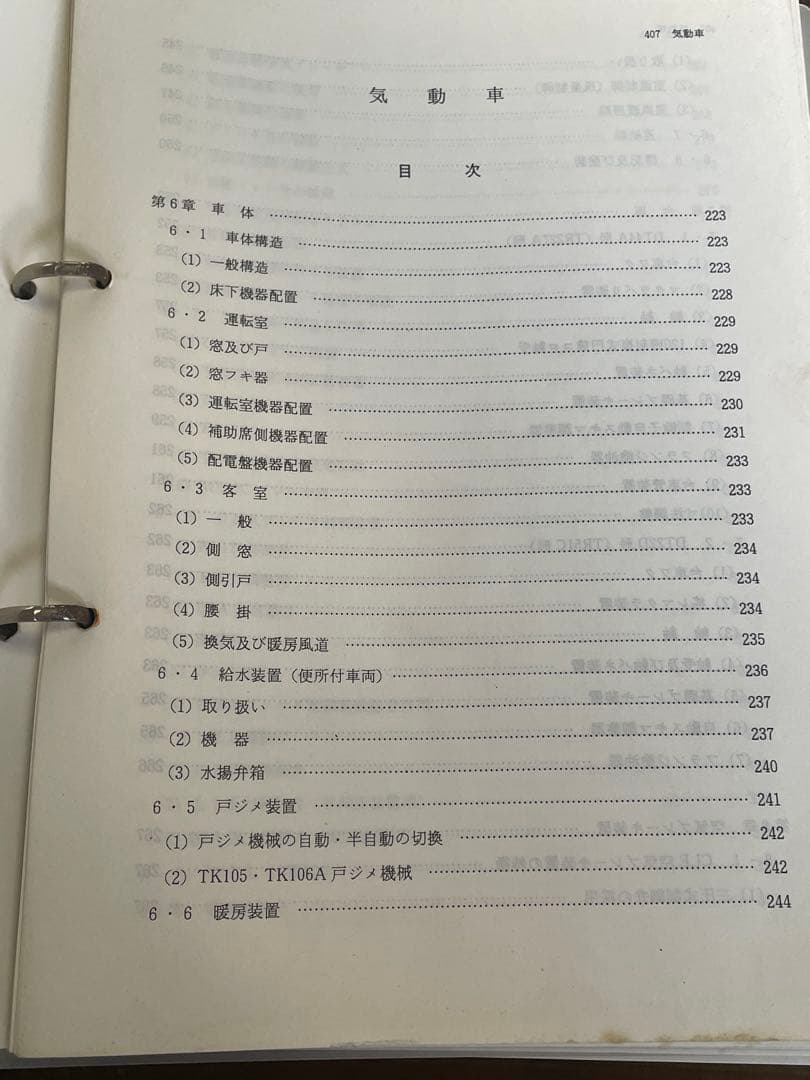 407 気動車
気動車
目次
第6章 車体 …… 223
6・1 車体構造 …… 223
(1) 一般構造 …… 223
(2) 床下機器配置 …… 228
6・2 運転室 …… 229
(1) 窓及び戸 …… 229
(2) 窓フキ器 …… 229
(3) 運転室機器配置 …… 230
(4) 補助席側機器配置 …… 231
(5) 配電盤機器配置 …… 233
6・3 客室 …… 233
(1) 一般 …… 233
(2) 側窓 …… 234
(3) 側引戸 …… 234
(4) 腰掛 …… 234
(5) 換気及び暖房風道 …… 235
6・4 給水装置（便所付車両） …… 236
(1) 取り扱い …… 237
(2) 機器 …… 237
(3) 水揚弁箱 …… 240
6・5 戸ジメ装置 …… 241
(1) 戸ジメ機械の自動・半自動の切換 …… 242
(2) TK105・TK106A戸ジメ機械 …… 242
6・6 暖房装置 …… 244